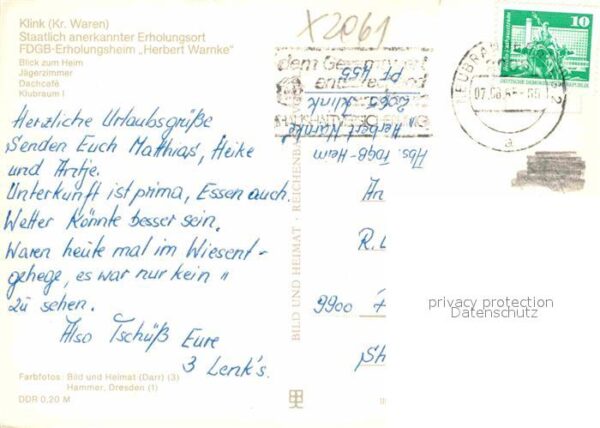 Klink (Kr. Waren)
Staatlich anerkannter Erholungsort
FDGB-Erholungsheim „Herbert Warnke"
Blick zum Heim
Jägerzimmer
Dachcafé
Klubraum I
X2061
Herzliche Urlaubsgrüße
senden Euch Matthias, Heike
und Antje.
Unterkunft ist prima, Essen auch.
Wetter könnte besser sein.
Waren heute mal im Wiesent-
gehege, es war nur kein "
zu sehen.
Also Tschüß Eure
3 Lenk's.
Farbfotos: Bild und Heimat (Darr) (3)
Hammer, Dresden (1)
DDR 0,20 M
BILD UND HEIMAT · REICHENB
Abs. FDGB-Heim
"Herbert Warnke"
2065 Klink
PF 455
10
DEUTSCHE DEMOKRATISCHE REPUBLIK
a
An
R. L
9900
privacy protection
Datenschutz